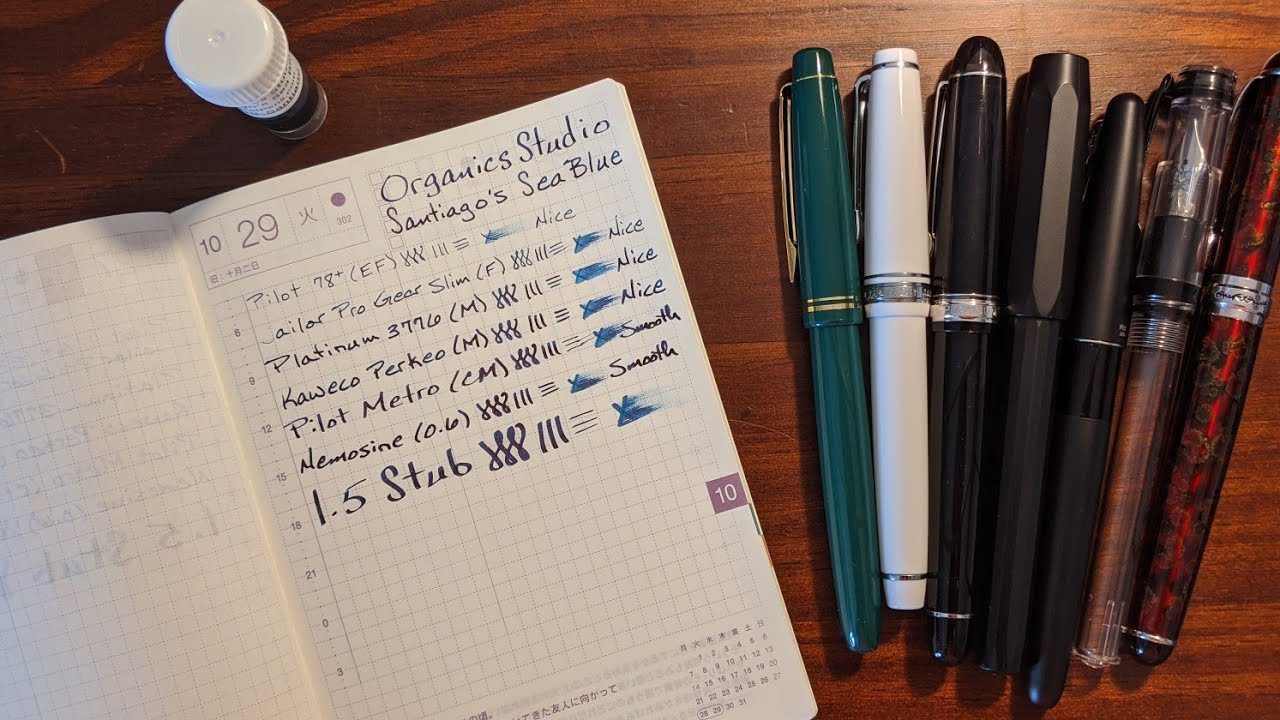 Organics Studio
Santiago's Sea Blue
10 29 火 302
旧:十月二日
Pilot 78+ (EF) Nice
Sailor Pro Gear Slim (F) Nice
Platinum 3776 (M) Nice
Kaweco Perkeo (M) Nice
Pilot Metro (CM) Smooth
Nemosine (0.6) Smooth
1.5 Stub
6
9
12
15
18
21
0
3
10
月 火 水 木 金 土 日
1 2 3 4 5 6
7 8 9 10 11 12 13
14 15 16 17 18 19 20
21 22 23 24 25 26 27
28 29 30 31
の頃。
てきた友人に向かって